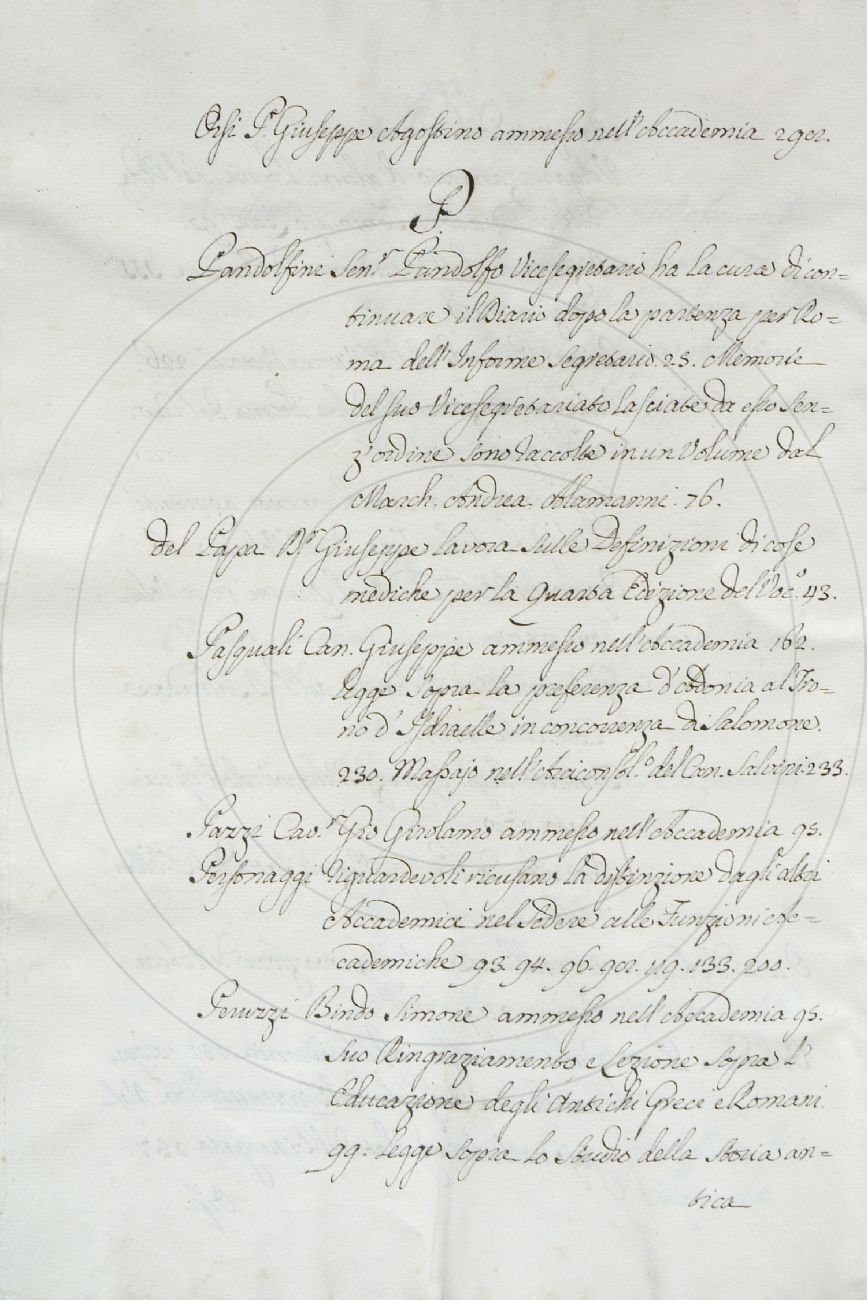 Orsi P. Giuseppe Agostino ammesso nell'Accademia
P
Pandolfini Sen.r Pandolfo Vicesegretario ha la cura di con=
tinuare il Diario dopo la partenza per Ro=
ma dell'Informe Segretario. 25. Memorie
del suo Vicesegretariato lasciate da esso sen=
z'ordine sono raccolte in un Volume dal
March. Andrea Alamanni. 76.
del Papa D.r Giuseppe lavora sulle Definizioni di cose
mediche per la Quarta Edizione del Voc.o 43.
Pasquali Can. Giuseppe ammesso nell'Accademia 162.
legge sopra la preferenza d'Adonia al Tro=
no d'Isdraelle in concorrenza di Salomone.
230. Massajo nell'Arciconsol.o del Can. Salvini. 233.
Pazzi Cav.r Gio Girolamo ammesso nell'Accademia 95.
Personaggi riguardevoli ricusano la distinzione dagli altri
Accademici nel sedere alle Funzioni Ac=
cademiche 93. 94. 96. 119. 133. 200.
Peruzzi Bindo Simone ammesso nell'Accademia 95.
suo Ringraziamento e Lezione sopra l'
Educazione degli Antichi Greci e Romani.
99. legge sopra lo studio della storia an=
tica